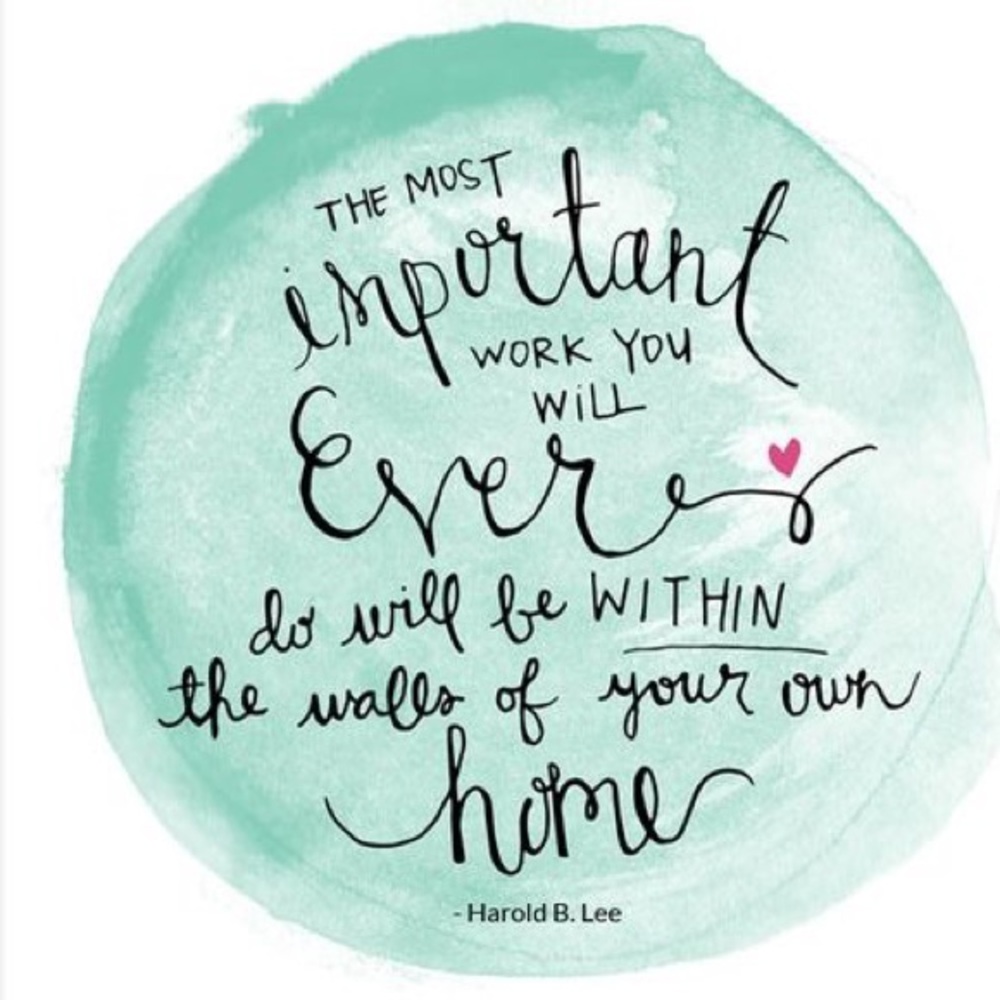 THE MOST
important
WORK YOU
WiLL
Ever
do will be WITHIN
the walls of your own
home
- Harold B. Lee